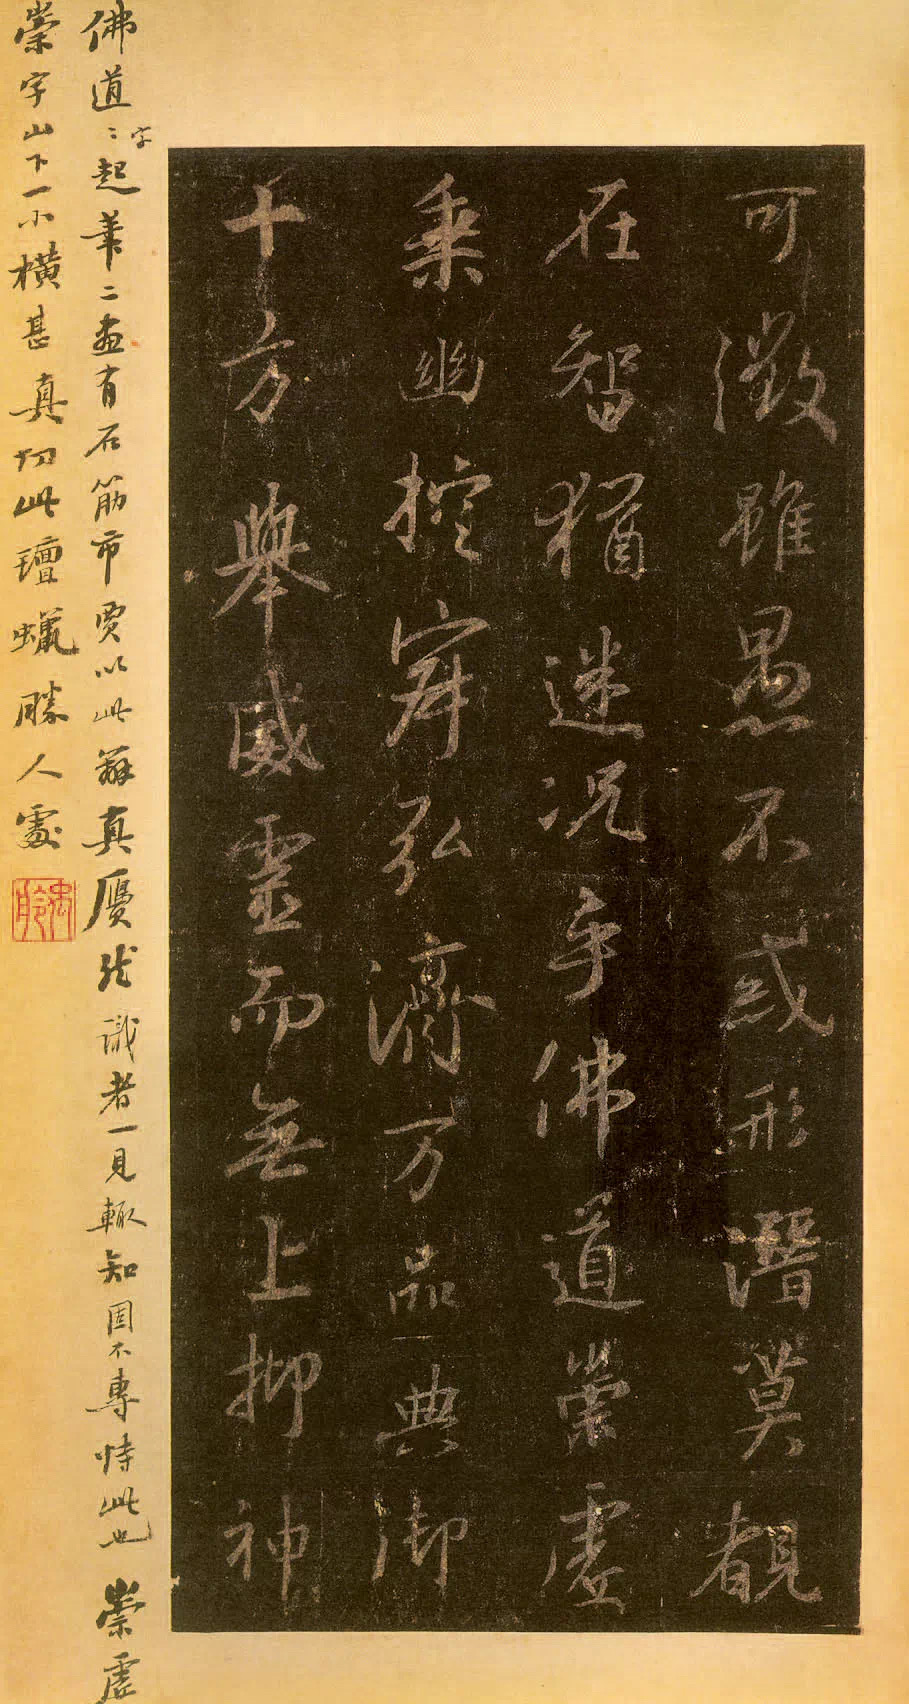 可徵雖愚不惑形潛莫覩
在智猶迷況乎佛道崇虛
乘幽控寂弘濟万品典御
十方舉威靈而無上抑神
佛道〻字起筆二畫有石筋市賈以此辨真贗然識者一見輒知固不專恃此也崇虛
崇字山下一小橫甚真切此氊蠟勝人處